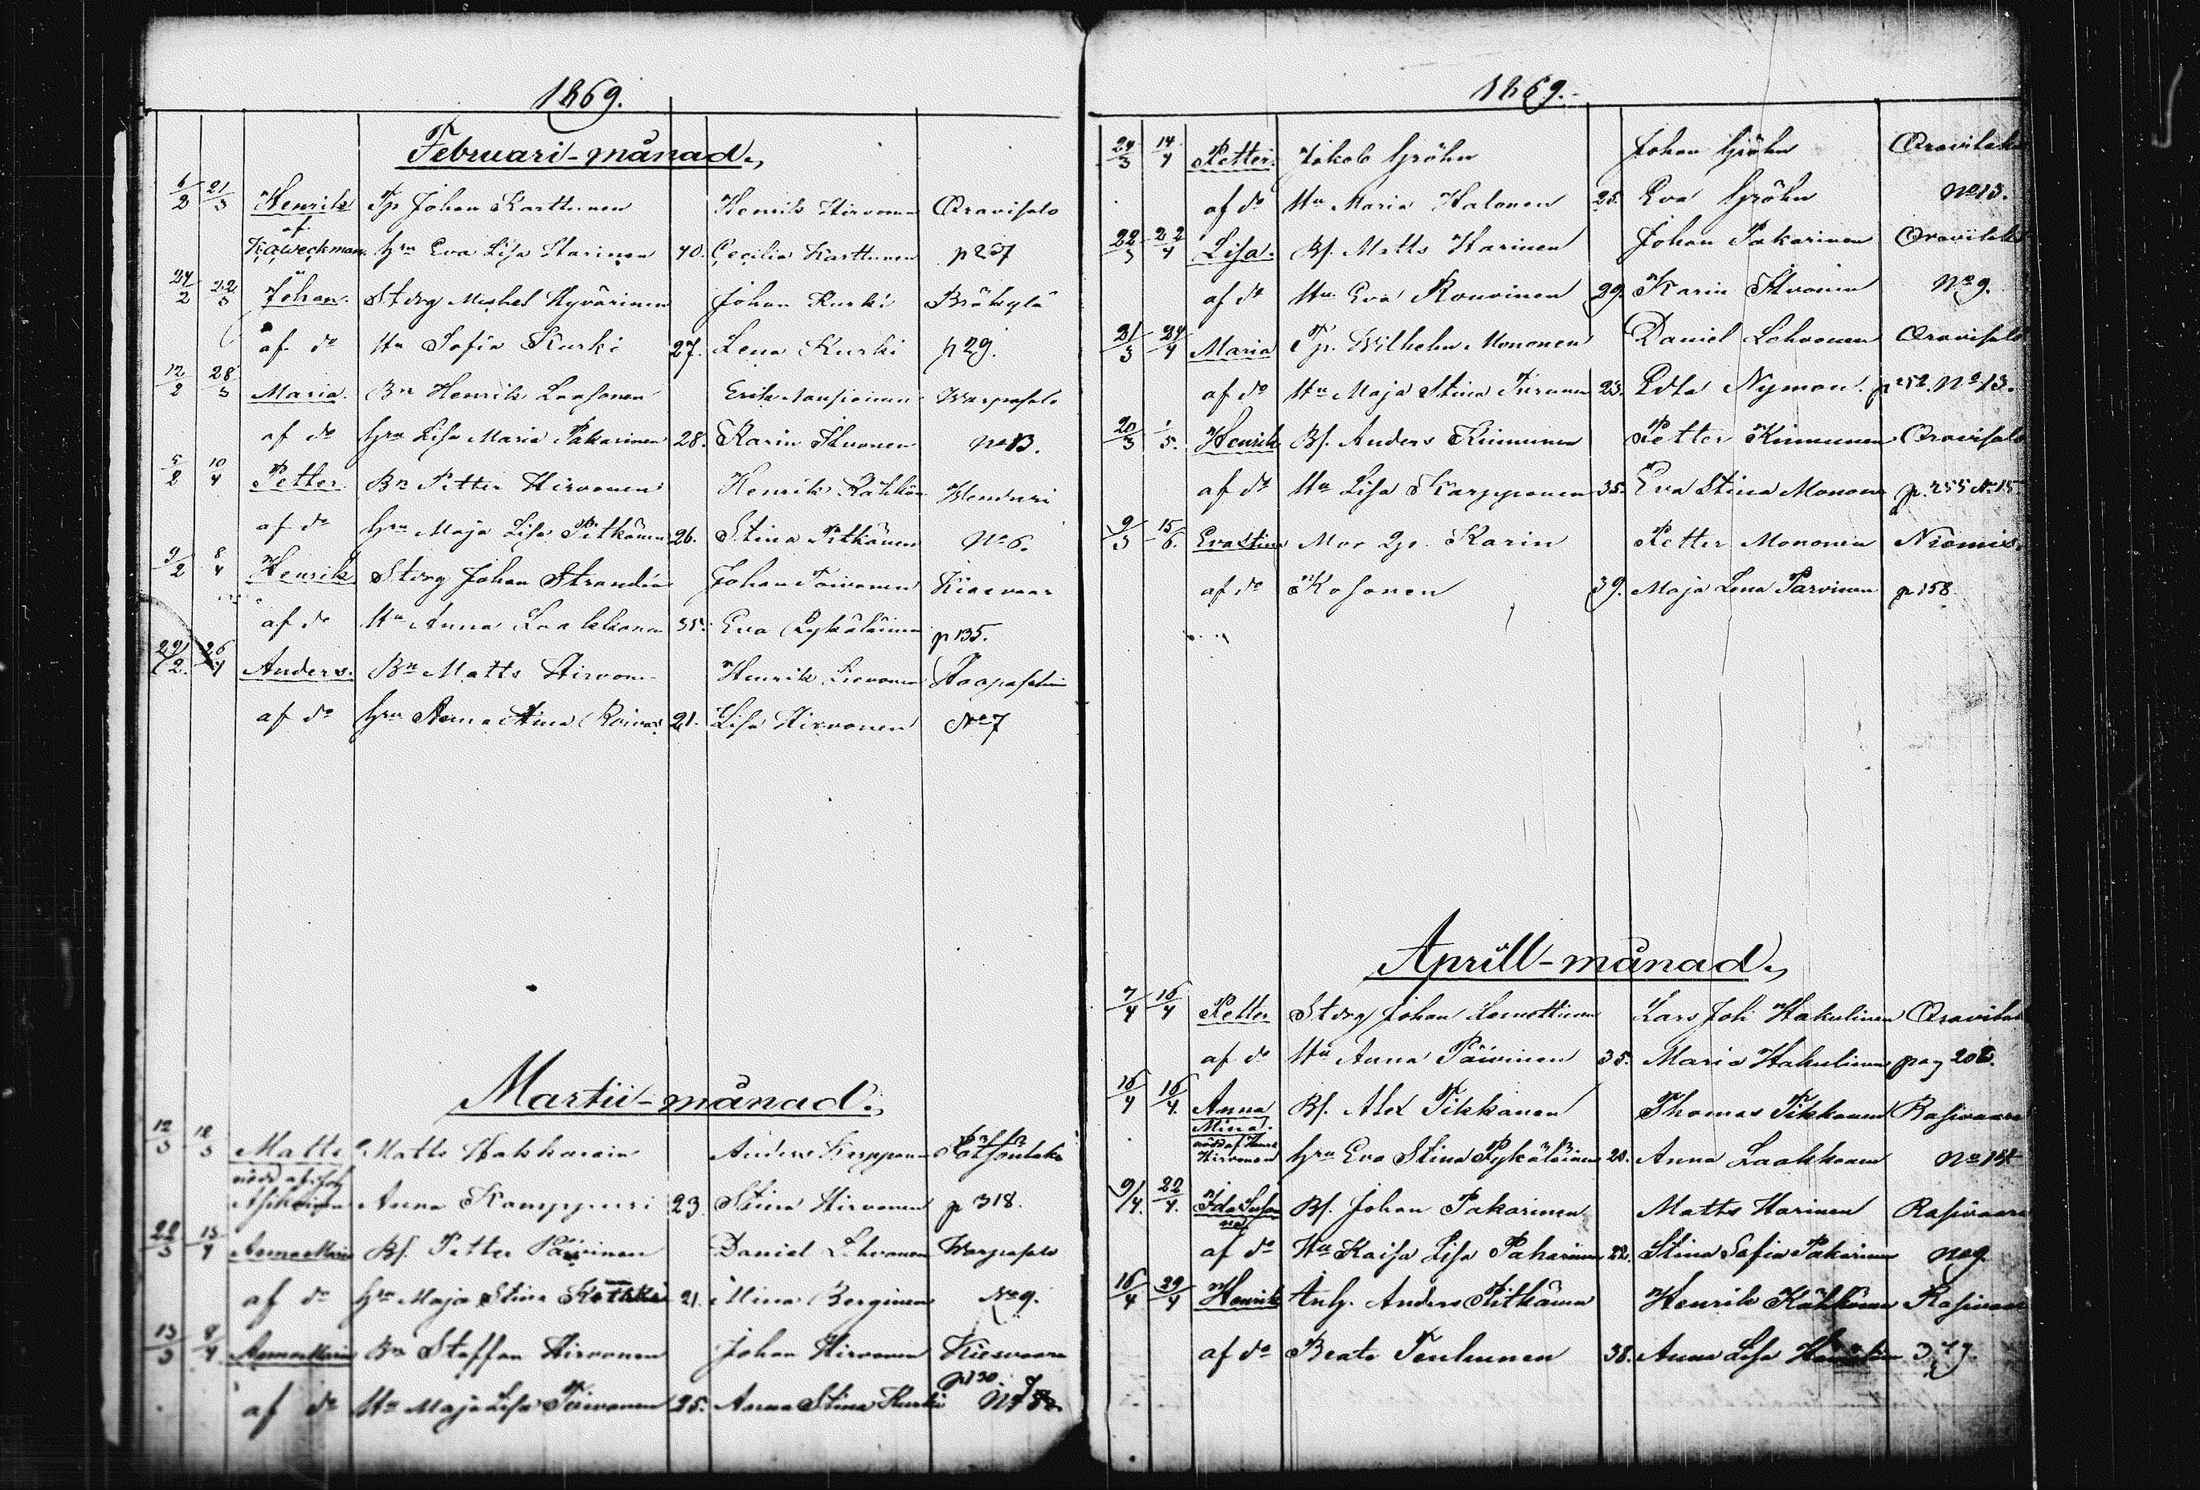 1869.
Februari-månad.
6/2 21/3 Henrik Tp Johan Karttunen Henrik Hirvonen Oravisalo
af Kaweckman hru Eva Lisa Harinen 40. Cecilia Karttunen p 257
24/2 22/3 Johan. Stdrg Michel Hyvärinen Johan Kurki Bråkylä
af do Hu Sofia Kurki 27. Lena Kurki p 29.
12/2 28/3 Maria. Bn Henrik Laasonen Erik Warpasalo
af do hru Lisa Maria Pakarinen 28. Karin No 13.
5/2 10/4 Petter. Bn Petter Hirvonen Henrik
af do hru Maja Lisa Pitkänen 26. Stina Pitkänen No 6.
9/2 8/4 Henrik Stdrg Johan Strandin Johan Toivonen Kiesvaar
af do Hu Anna Laakkonen 35. Eva Pykäläinen p 135.
29/2. 26/4 Anders. Bn Matts Hirvonen Henrik Lievonen Haapasalmi
af do hru Anna Stina Roivas 21. Lisa Hirvonen No 7
Martii-månad.
12/3 18/3 Matts Matts Kakkarain Anders
född af Anna Kamppuri 23. Stina Hirvonen p 318.
22/3 13/4 Anna Maria Bf. Petter Päivinen Daniel Lehvonen Warpasalo
af do hru Maja Stina 21. Mina Berginen No 9.
13/3 8/4 Anna Maria Bn Staffan Hirvonen Johan Hirvonen Kiesvaara
p 130.
af do Hu Maja Lisa Toivonen 25. Anna Stina Kurki
1869.
24/3 14/4 Petter. Jakob Gröhn Johan Gröhn Oravilaks
af do Hu Maria Halonen 25. Eva Gröhn No 13.
22/3 22/4 Lisa. Bf. Matts Harinen Johan Pakarinen Oravilaks
af do Hu Eva Rouvinen 29. Karin No 9.
21/3 24/4 Maria Tp. Wilhelm Mononen Daniel Lehvonen Oravisalo
af do Hu Maja Stina Turunen 23. Edla Nyman. p 252. No 13.
20/3 1/5. Henrik Bf. Anders Kinnunen Petter Kinnunen Oravisalo
af do Hu Lisa Karpponen 35. Eva Stina Mononen p. 255 No 15
9/3 15/6. Eva Stina Mor Qp. Karin Petter Mononen Niemis.
af do Kosonen 39. Maja Lena Parvinen p 158
Aprill-månad.
7/4 16/4 Petter Stdrg Johan Lamottinen Lars Joh Hakulinen Oravilaks
af do Hu Anna Päivinen 35. Maria Hakulinen pag 208.
16/4 16/4. Anna Bf. Alex Tikkanen Thomas Tikkanen Rasivaara
Mina.
född af Henrik
Hirvonen hru Eva Stina Pykäläinen 20. Anna Laakkonen No 14
9/4. 22/4. Ida Susanna Bf. Johan Pakarinen Matts Harinen Rasivaara
af do Hu Kaisa Lisa Pakarinen 22. Stina Sofia Pakarinen No 9.
16/4 29/4 Henrik Inh. Anders Pitkänen Henrik Kähkönen Rasivaara
af do Beata Tenhunen 38. Anna Lisa 379.